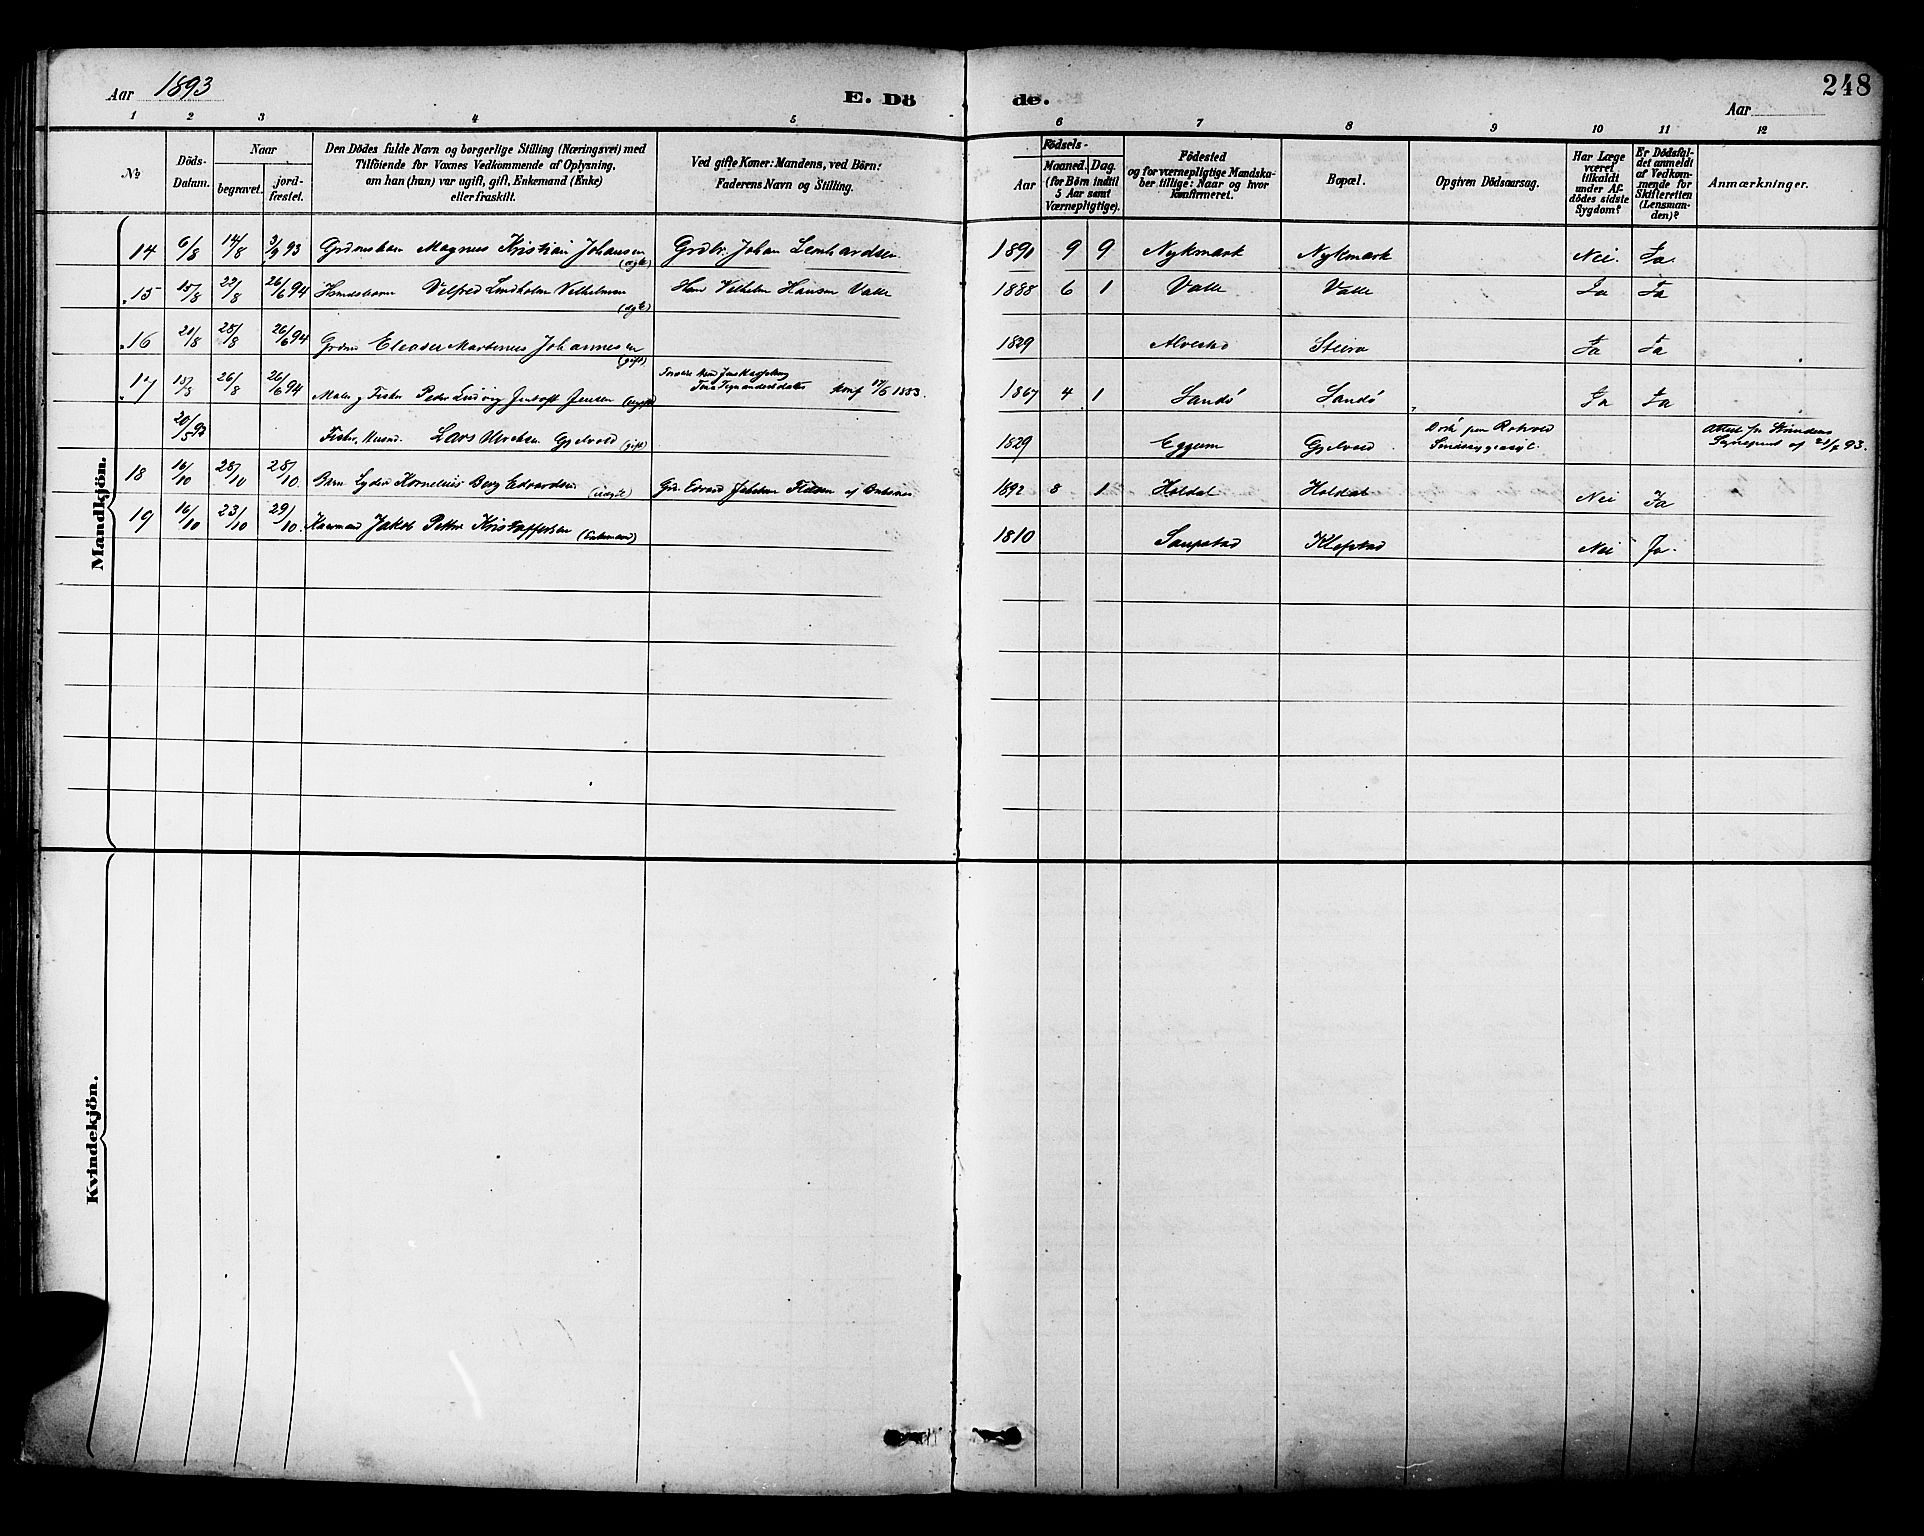 Aar 1893
E. Dö de.
Aar
248
1 2 3 4 5 6 7 8 9 10 11 12
№
Döds-Datum.
Naar
begravet.
jord-fæstet.
Den Dödes fulde Navn og borgerlige Stilling (Næringsvei) med
Tilföiende for Voxnes Vedkommende af Oplysning,
om han (hun) var ugift, gift, Enkemand (Enke)
eller fraskilt.
Ved gifte Koner: Mandens, ved Börn:
Faderens Navn og Stilling.
Födsels-
Aar
Maaned. Dag.
(for Börn indtil
5 Aar samt
Værnepligtige).
Födested
og for værnepligtige Mandska-
ber tillige: Naar og hvor
konfirmeret.
Bopæl.
Opgiven Dödsaarsag.
Har Læge
været
tilkaldt
under Af-
dödes sidste
Sygdom?
Er Dödsfal-
det anmeldt
af Vedkom-
mende for
Skifteretten
(Lensman-
den)?
Anmærkninger.
Mandkjön.
14 6/8 14/8 3/9 93 Magnus Kristian Johansen (ægte) Johan Lenhardsen 1890 9 9 Nykmark Nykmark Nei. Ja.
15 15/8 22/8 26/6 94 Vilfred Lindholm Vilhelmsen (ægte) Vilhelm Hansen Valle 1888 6 1 Valle Valle Ja Ja
16 21/8 28/8 26/6 94 Martinus Johannesen (gift) 1829 Alvestad Steira Ja Ja
17 26/8 26/6 94 Fisker Peder Ludvig Jentoft Jensen (ugift) konf 17/6 1883. 1867 4 1 Sandö Sandö Ja Ja
20/5 93 Fisker, Lars Gjelvold (gift) 1829 Eggum Gjelvold Rotvold Sindssygeasyl. Attest fr Strindens 93.
18 16/10 28/10 28/10. Barn Lyder Kornelius Berg Edvardsen (uægte) Edvard 1892 8 1 Holdal Holdal Nei Ja
19 16/10 23/10 29/10. Jakob Petter Kristoffersen (Enkemand) 1810 Saupstad Klepstad Nei Ja.
Kvindekjön.